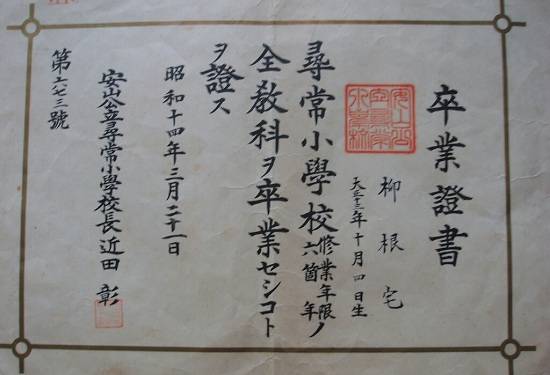 卒業證書
柳根宅
大正十三年十月四日生
尋常小學校修業年限六箇年ノ
全教科ヲ卒業セシコト
ヲ證ス
昭和十四年三月二十一日
安山公立尋常小學校長近田彰
第六七三號